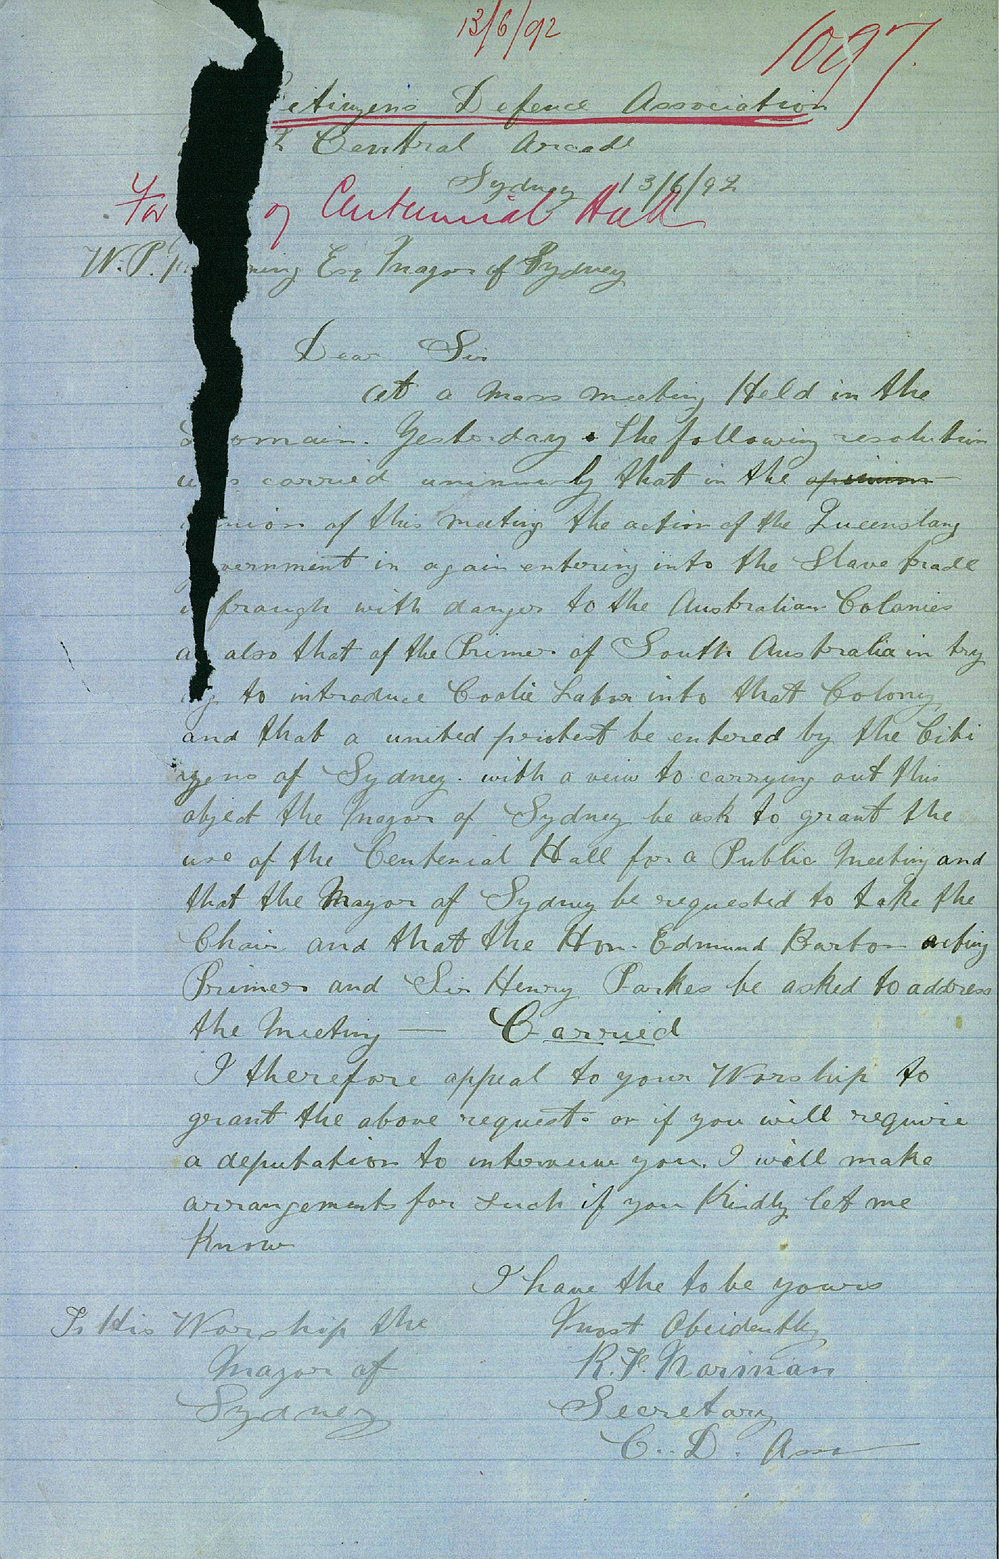 13/6/92
1097.
Citizens Defence Association
Central Arcade
Sydney 13/6/92
For of Centennial Hall
W. P. ning Esq Mayor of Sydney
Dear Sir
At a Mass meeting Held in the
Domain. Yesterday. The following resolution
was carried that in the opinion
opinion of this meeting the action of the Queensland
government in again entering into the Slave trade
is fraugh with danger to the Australian Colonies
as also that of the Primer of South Australia in try
ing to introduce Coolie Labor into that Colony
and that a united protest be entered by the Citi
zens of Sydney. with a veiw to carrying out this
object the Mayor of Sydney be ask to grant the
use of the Centenial Hall for a Public Meeting and
that the Mayor of Sydney be requested to take the
Chair and that the Hon. Edmund Barton acting
Primer and Sir Henry Parkes be asked to address
the Meeting — Carried
I therefore appeal to your Worship to
grant the above request. or if you will requirie
a deputation to you. I will make
arrangements for such if you Kindly let me
Know
I have the to be yours
Most Obeidently
R. F. Norman
Secretary
C. D. Ass
To His Worship the
Mayor of
Sydney